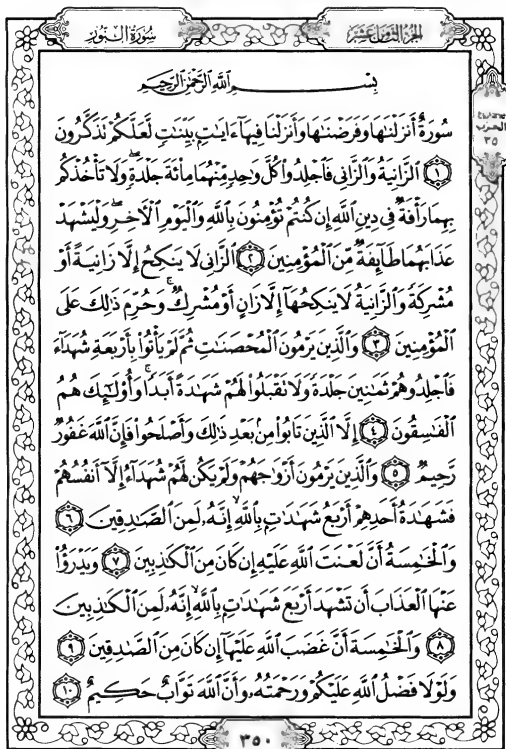 سُورَةُ النُّورِ
الجُزْءُ الثَّامِنَ عَشَرَ
بِسْمِ اللَّهِ الرَّحْمَٰنِ الرَّحِيمِ
سُورَةٌ أَنزَلْنَٰهَا وَفَرَضْنَٰهَا وَأَنزَلْنَا فِيهَآ ءَايَٰتٍۭ بَيِّنَٰتٍ لَّعَلَّكُمْ تَذَكَّرُونَ
١ ٱلزَّانِيَةُ وَٱلزَّانِى فَٱجْلِدُوا۟ كُلَّ وَٰحِدٍ مِّنْهُمَا مِا۟ئَةَ جَلْدَةٍ ۖ وَلَا تَأْخُذْكُم
بِهِمَا رَأْفَةٌ فِى دِينِ ٱللَّهِ إِن كُنتُمْ تُؤْمِنُونَ بِٱللَّهِ وَٱلْيَوْمِ ٱلْءَاخِرِ ۖ وَلْيَشْهَدْ
عَذَابَهُمَا طَآئِفَةٌ مِّنَ ٱلْمُؤْمِنِينَ ٢ ٱلزَّانِى لَا يَنكِحُ إِلَّا زَانِيَةً أَوْ
مُشْرِكَةً وَٱلزَّانِيَةُ لَا يَنكِحُهَآ إِلَّا زَانٍ أَوْ مُشْرِكٌ ۚ وَحُرِّمَ ذَٰلِكَ عَلَى
ٱلْمُؤْمِنِينَ ٣ وَٱلَّذِينَ يَرْمُونَ ٱلْمُحْصَنَٰتِ ثُمَّ لَمْ يَأْتُوا۟ بِأَرْبَعَةِ شُهَدَآءَ
فَٱجْلِدُوهُمْ ثَمَٰنِينَ جَلْدَةً وَلَا تَقْبَلُوا۟ لَهُمْ شَهَٰدَةً أَبَدًا ۚ وَأُو۟لَٰٓئِكَ هُمُ
ٱلْفَٰسِقُونَ ٤ إِلَّا ٱلَّذِينَ تَابُوا۟ مِنۢ بَعْدِ ذَٰلِكَ وَأَصْلَحُوا۟ فَإِنَّ ٱللَّهَ غَفُورٌ
رَّحِيمٌ ٥ وَٱلَّذِينَ يَرْمُونَ أَزْوَٰجَهُمْ وَلَمْ يَكُن لَّهُمْ شُهَدَآءُ إِلَّآ أَنفُسُهُمْ
فَشَهَٰدَةُ أَحَدِهِمْ أَرْبَعُ شَهَٰدَٰتٍۭ بِٱللَّهِ ۙ إِنَّهُۥ لَمِنَ ٱلصَّٰدِقِينَ ٦
وَٱلْخَٰمِسَةُ أَنَّ لَعْنَتَ ٱللَّهِ عَلَيْهِ إِن كَانَ مِنَ ٱلْكَٰذِبِينَ ٧ وَيَدْرَؤُا۟
عَنْهَا ٱلْعَذَابَ أَن تَشْهَدَ أَرْبَعَ شَهَٰدَٰتٍۭ بِٱللَّهِ ۙ إِنَّهُۥ لَمِنَ ٱلْكَٰذِبِينَ
٨ وَٱلْخَٰمِسَةَ أَنَّ غَضَبَ ٱللَّهِ عَلَيْهَآ إِن كَانَ مِنَ ٱلصَّٰدِقِينَ ٩
وَلَوْلَا فَضْلُ ٱللَّهِ عَلَيْكُمْ وَرَحْمَتُهُۥ وَأَنَّ ٱللَّهَ تَوَّابٌ حَكِيمٌ ١٠
الحزب
٣٥
٣٥٠